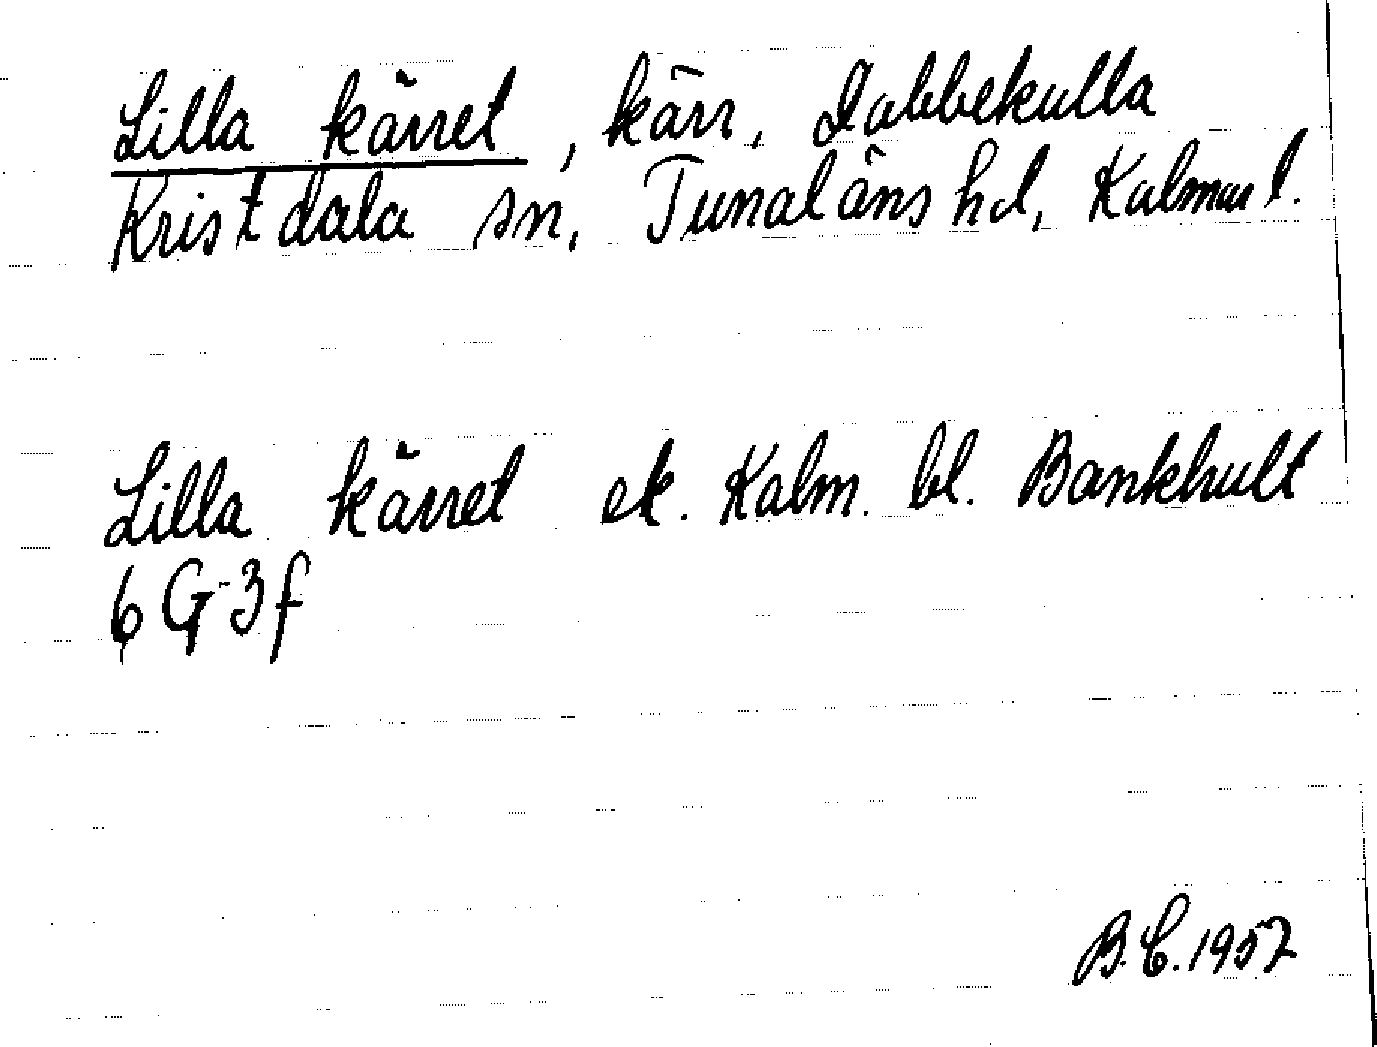 Lilla kärret, kärr, Dabbekulla
Kristdala sn, Tunaläns hd, Kalmar l.
Lilla kärret ek. Kalm. bl. Bankhult
6 G-3f
B.C. 1957